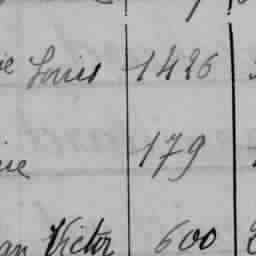 ie Louis 1426
ine 179
an Victor 600